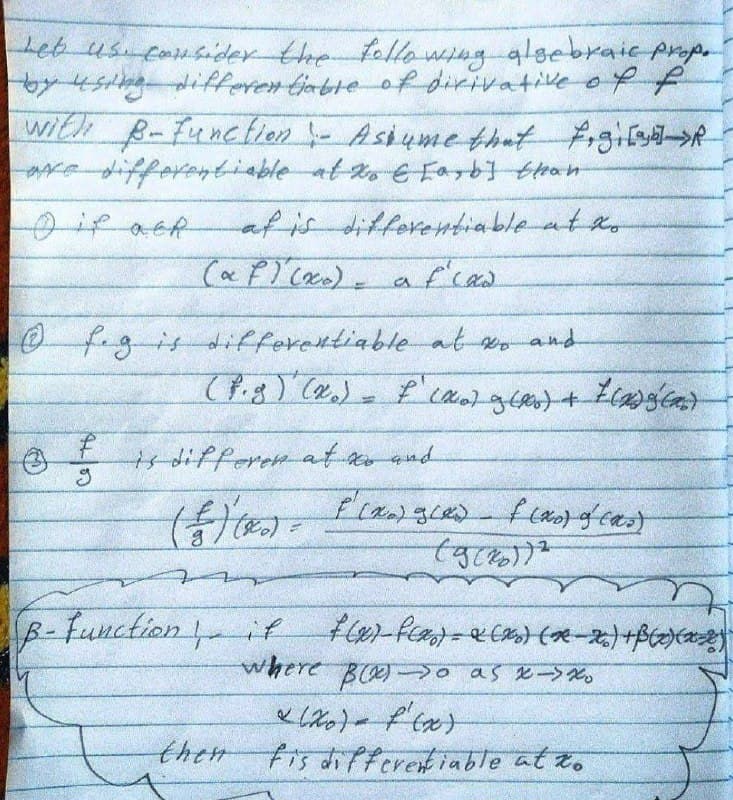 Let us. consider the following algebraic prop.
by using differentiable of dirivative of f
with β-function :- Assume that f,g:[a,b]→R
are differentiable at x₀ ∈ [a,b] than
① if a∈R af is differentiable at x₀
(αf)'(x₀) = a f'(x₀)
② f.g is differentiable at x₀ and
(f.g)'(x₀) = f'(x₀) g(x₀) + f(x₀)g'(x₀)
③ f/g is differen at x₀ and
(f/g)'(x₀) = f'(x₀) g(x₀) - f(x₀) g'(x₀) / (g(x₀))²
β-function :- if f(x)-f(x₀) = α(x₀) (x-x₀)+β(x)(x-x₀)
where β(x)→0 as x→x₀
α(x₀) = f'(x)
then f is differentiable at x₀